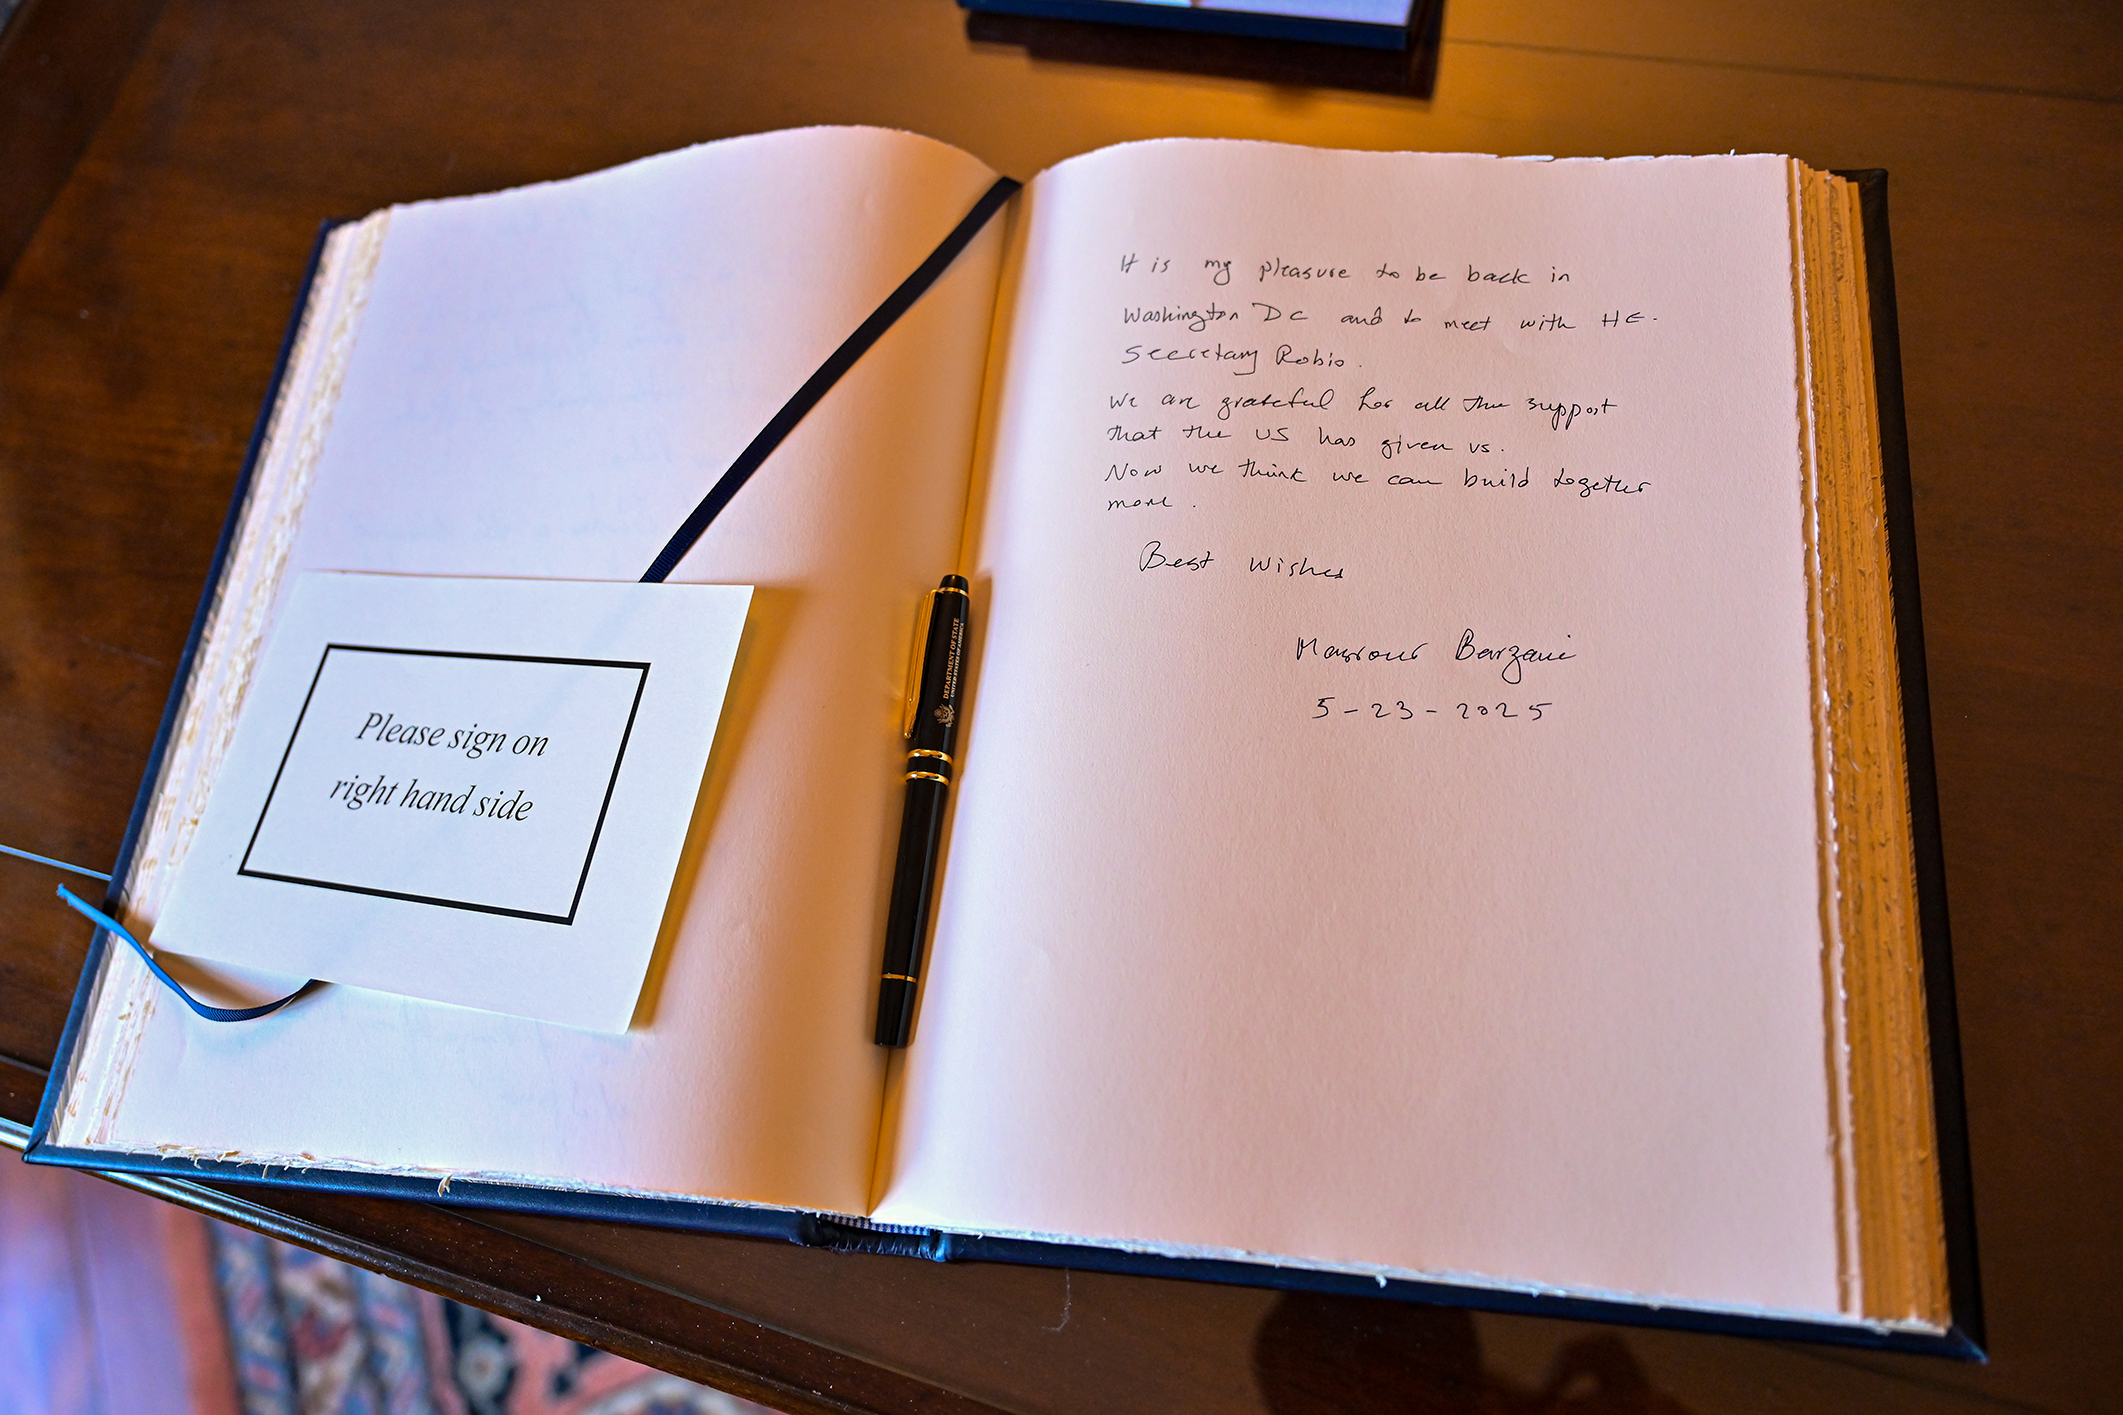 It is my pleasure to be back in
Washington DC and to meet with HE.
Secretary Rubio.
We are grateful for all the support
that the US has given us.
Now we think we can build together
more.
Best Wishes
Masrour Barzani
5-23-2025
Please sign on
right hand side
DEPARTMENT OF STATE
UNITED STATES OF AMERICA